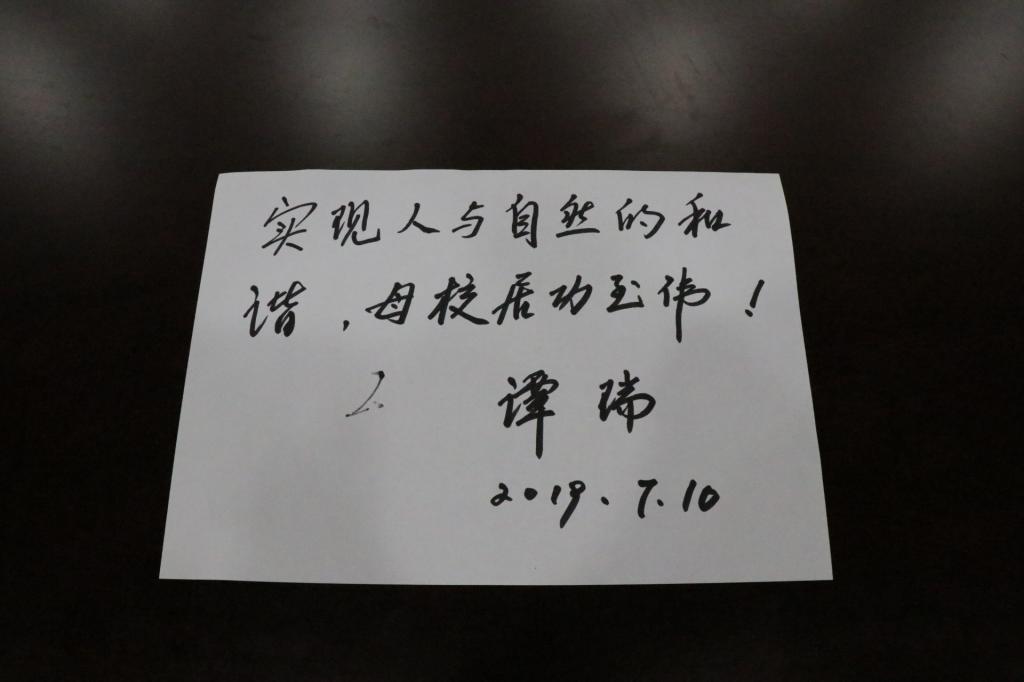 实现人与自然的和
谐，母校居功至伟！
谭瑞
2019.7.10